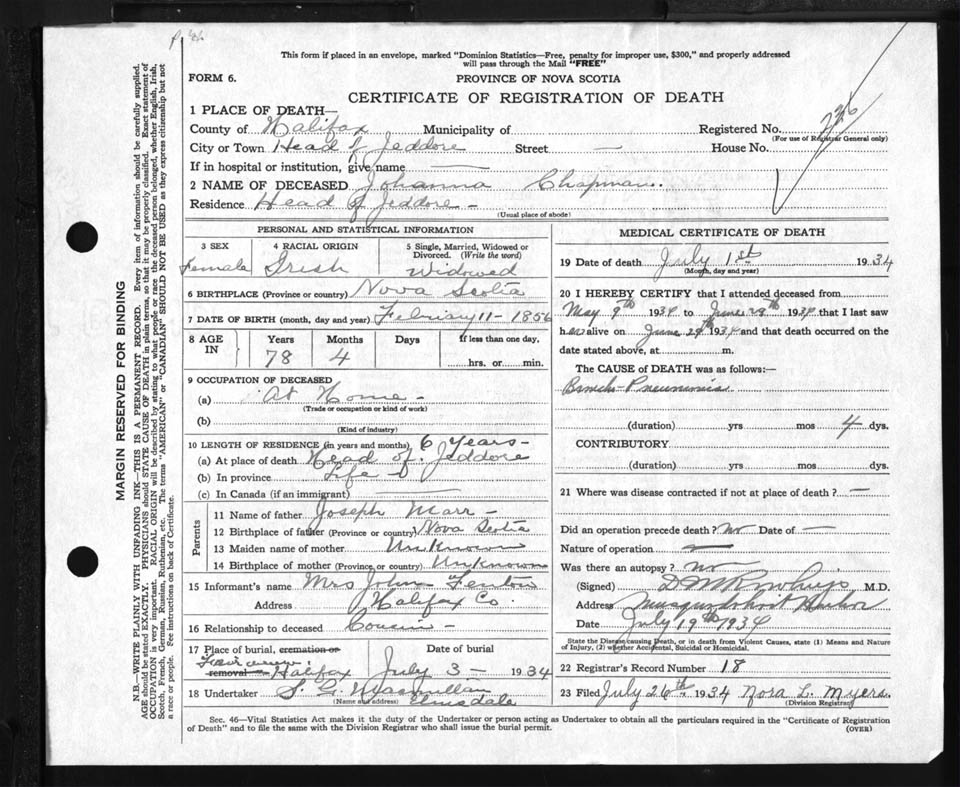 This form if placed in an envelope, marked "Dominion Statistics—Free, penalty for improper use, $300," and properly addressed
will pass through the Mail "FREE"
FORM 6.
PROVINCE OF NOVA SCOTIA
CERTIFICATE OF REGISTRATION OF DEATH
1 PLACE OF DEATH—
County of Halifax Municipality of Registered No. 236
(For use of Registrar General only)
City or Town Head of Jeddore Street — House No.
If in hospital or institution, give name —
2 NAME OF DECEASED Johanna Chapman.
Residence Head of Jeddore -
(Usual place of abode)
MARGIN RESERVED FOR BINDING
N.B.—WRITE PLAINLY WITH UNFADING INK—THIS IS A PERMANENT RECORD. Every item of information should be carefully supplied.
AGE should be stated EXACTLY. PHYSICIANS should STATE CAUSE OF DEATH in plain terms, so that it may be properly classified. Exact statement of
OCCUPATION is very important. RACIAL ORIGIN will be described by stating to what people or race the deceased person belonged, whether English, Irish,
Scotch, French, German, Russian, Ruthenian, etc. The terms "AMERICAN" or "CANADIAN" SHOULD NOT BE USED as they express citizenship but not
a race or people. See instructions on back of Certificate.
PERSONAL AND STATISTICAL INFORMATION
3 SEX
Female
4 RACIAL ORIGIN
Irish
5 Single, Married, Widowed or
Divorced. (Write the word)
Widowed
6 BIRTHPLACE (Province or country) Nova Scotia
7 DATE OF BIRTH (month, day and year) February 11- 1856
8 AGE
IN
Years
78
Months
4
Days
If less than one day,
hrs. or min.
9 OCCUPATION OF DECEASED
(a) At Home -
(Trade or occupation or kind of work)
(b)
(Kind of industry)
10 LENGTH OF RESIDENCE (in years and months) 6 Years-
(a) At place of death Head of Jeddore
(b) In province Life -
(c) In Canada (if an immigrant) —
Parents
11 Name of father Joseph Marr-
12 Birthplace of father (Province or country) Nova Scotia
13 Maiden name of mother Unknown
14 Birthplace of mother (Province or country) Unknown
15 Informant's name Mrs John Fenton
Address Halifax Co.
16 Relationship to deceased Cousin -
17 Place of burial, cremation or
removal— Halifax
Date of burial
July 3 - 1934
18 Undertaker S. G. Macmillan
(Name and address) Elmsdale
MEDICAL CERTIFICATE OF DEATH
19 Date of death July 1st 1934
(Month, day and year)
20 I HEREBY CERTIFY that I attended deceased from
May 9th 1934 to June 29th 1934 that I last saw
her alive on June 29th 1934 and that death occurred on the
date stated above, at m.
The CAUSE of DEATH was as follows:—
Broncho-Pneumonia
(duration) yrs mos 4 dys.
CONTRIBUTORY
(duration) yrs mos dys.
21 Where was disease contracted if not at place of death? —
Did an operation precede death? No Date of —
Nature of operation —
Was there an autopsy? No
(Signed) M.D.
Address Musquodoboit Harbor
Date July 19th 1934
State the Disease causing Death, or in death from Violent Causes, state (1) Means and Nature
of Injury, (2) whether Accidental, Suicidal or Homicidal.
22 Registrar's Record Number 18
23 Filed July 26th 1934 Nora L. Myers
(Division Registrar)
Sec. 46—Vital Statistics Act makes it the duty of the Undertaker or person acting as Undertaker to obtain all the particulars required in the "Certificate of Registration
of Death" and to file the same with the Division Registrar who shall issue the burial permit.
(OVER)